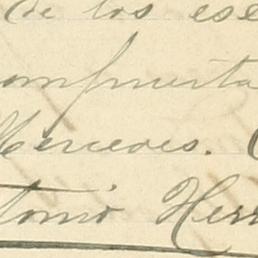 de los ese
compuesta
Mercedes.
tonio Herr